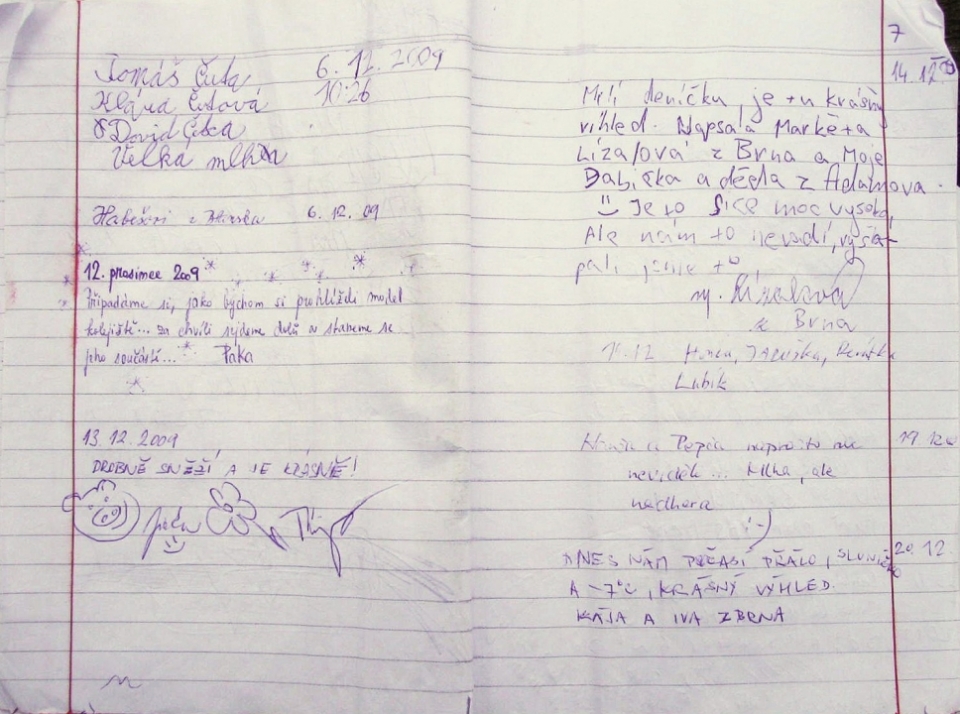 Tomáš Čuta 6.12.2009
Klára Čutová 10:26
David Čuta
Velká mlha
6.12.09
12. prosinec 2009
Připadáme si, jako bychom si prohlíželi model
kolejiště... za chvíli sejdeme dolů a staneme se
jeho součástí... Paka
13.12.2009
DROBNĚ SNĚŽÍ A JE KRÁSNĚ!
7
14.12
Milí deníčku, je tu krásný
vihled. Napsala Markéta
Lízalová z Brna a Moje
Babička a děda z Adamova.
Je to sice moc vysoko,
Ale nám to nevadí, vyšla-
pali jsme to
M. Lízalová
z Brna
Honza, Jaruška,
Lubik
a Pepča naprosto nic
neviděli... Mlha, ale
nádhera
:-)
20.12.
DNES NÁM POČASÍ PŘÁLO, SLUNÍČKO
A -7°C, KRÁSNÝ VÝHLED.
KÁJA A IVA Z BRNA